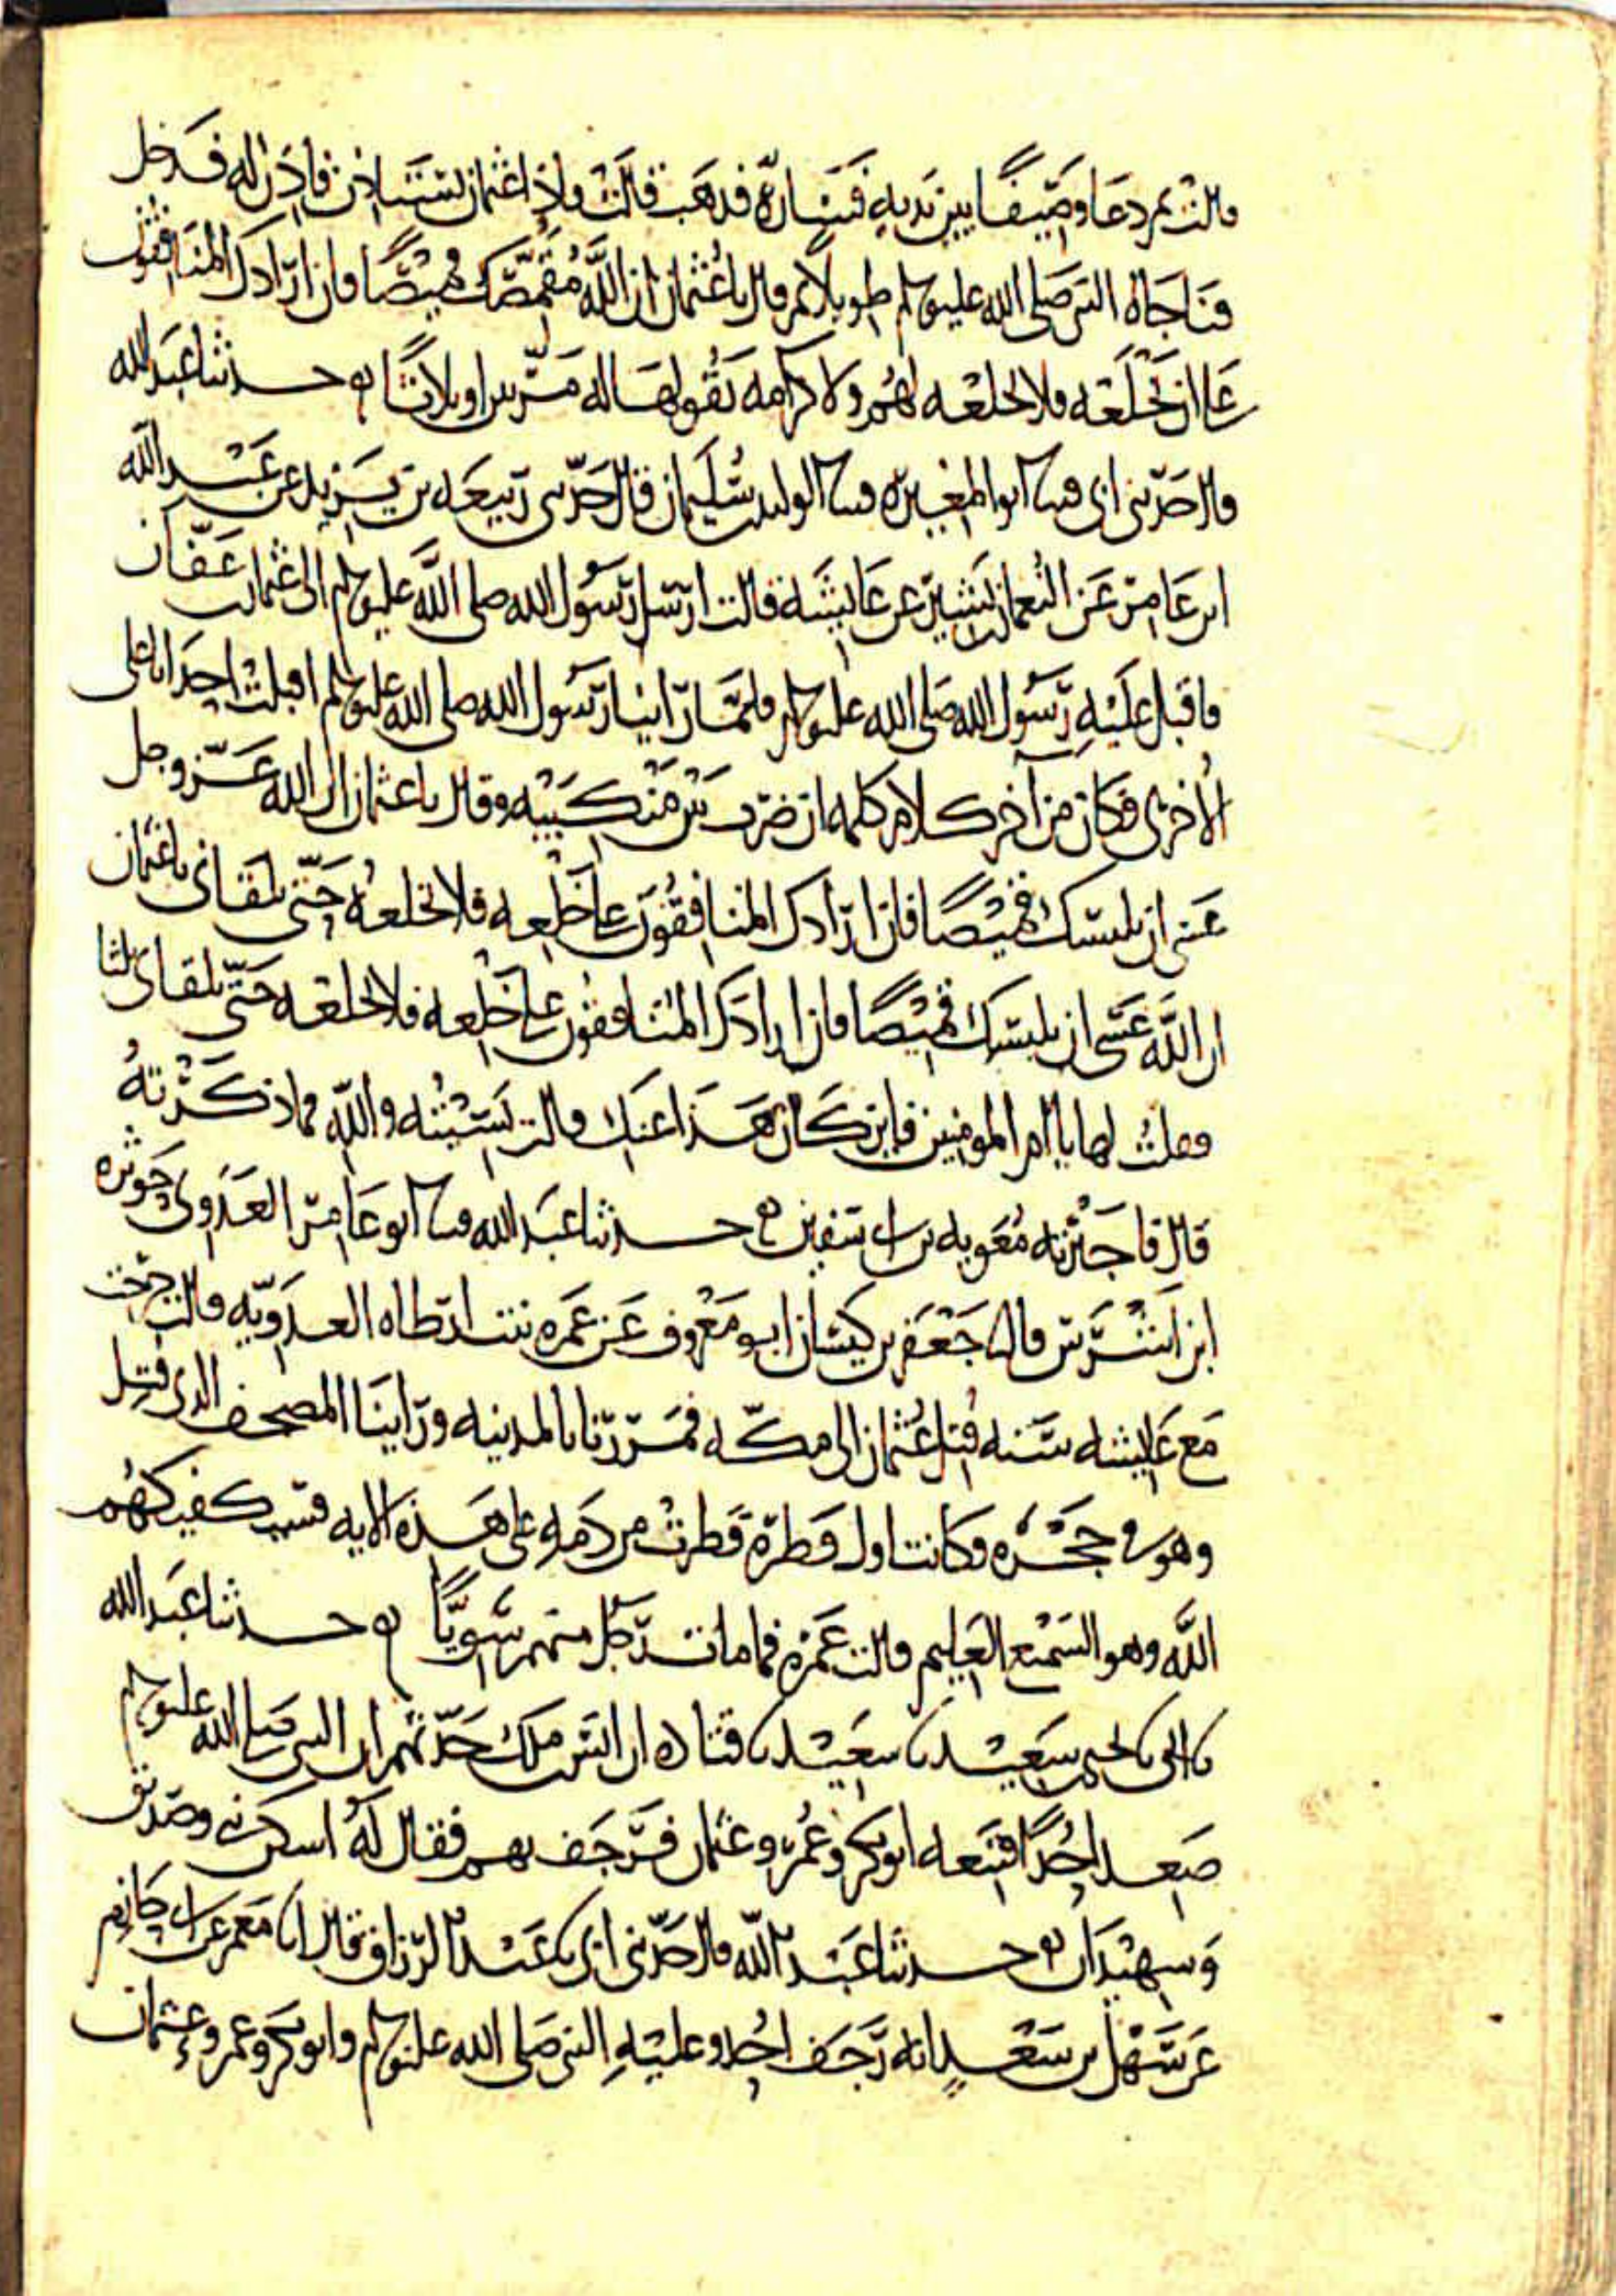 قالت ثم دعا وصيفا بين يديه فساره فذهب قالت واذا عثمان يستاذن فاذن له فدخل
فناجاه النبي صلى الله عليه وسلم طويلا ثم قال يا عثمان ان الله مقمصك قميصا فان ارادك المنافقون
على ان تخلعه فلا تخلعه لهم ولا كرامه يقولها له مرتين او ثلاثا حدثنا عبد الله
قال حدثني ابي قثنا ابو المغيره قثنا الوليد بن سليمان قال حدثني ربيعه بن يزيد عن عبد الله
ابن عامر عن النعمان بن بشير عن عايشه قالت ارسل رسول الله صلى الله عليه وسلم الى عثمان بن عفان
فاقبل عليه رسول الله صلى الله عليه وسلم فلما راينا رسول الله صلى الله عليه وسلم اقبلت احدانا على
الاخرى فكان من اخر كلام كلمه ان ضرب بين منكبيه وقال يا عثمان ان الله عز وجل
عسى ان يلبسك قميصا فان ارادك المنافقون على خلعه فلا تخلعه حتى تلقاني يا عثمان
ان الله عسى ان يلبسك قميصا فان ارادك المنافقون على خلعه فلا تخلعه حتى تلقاني ثلثا
فقلت لها يا ام المومنين فاين كان هذا عنك قالت نسيته والله فما ذكرته
قال فاخبرته معويه بن ابي سفين حدثنا عبد الله قثنا ابو عامر العدوي حوثره
ابن اشرس قال جعفر بن كيسان ابو معروف عن عمره بنت ارطاه العدويه قالت خرجت
مع عايشه سنه قتل عثمان الى مكه فمررنا بالمدينه وراينا المصحف الذي قتل
وهو في حجره فكانت اول قطرة قطرت من دمه على هذه الايه فسيكفيكهم
الله وهو السميع العليم قالت عمره فما مات رجل منهم سويا حدثنا عبد الله
نا ابي نا يحيى بن سعيد نا سعيد نا قتاده ان انس بن ملك حدثهم ان النبي صلى الله عليه وسلم
صعد احدا فتبعه ابو بكر وعمر وعثمان فرجف بهم فقال له اسكن نبي وصديق
وشهيدان حدثنا عبد الله قال حدثني ابي نا عبد الرزاق قال انا معمر عن ابي حازم
عن سهل بن سعد انه رجف احد وعليه النبي صلى الله عليه وسلم وابو بكر وعمر وعثمان